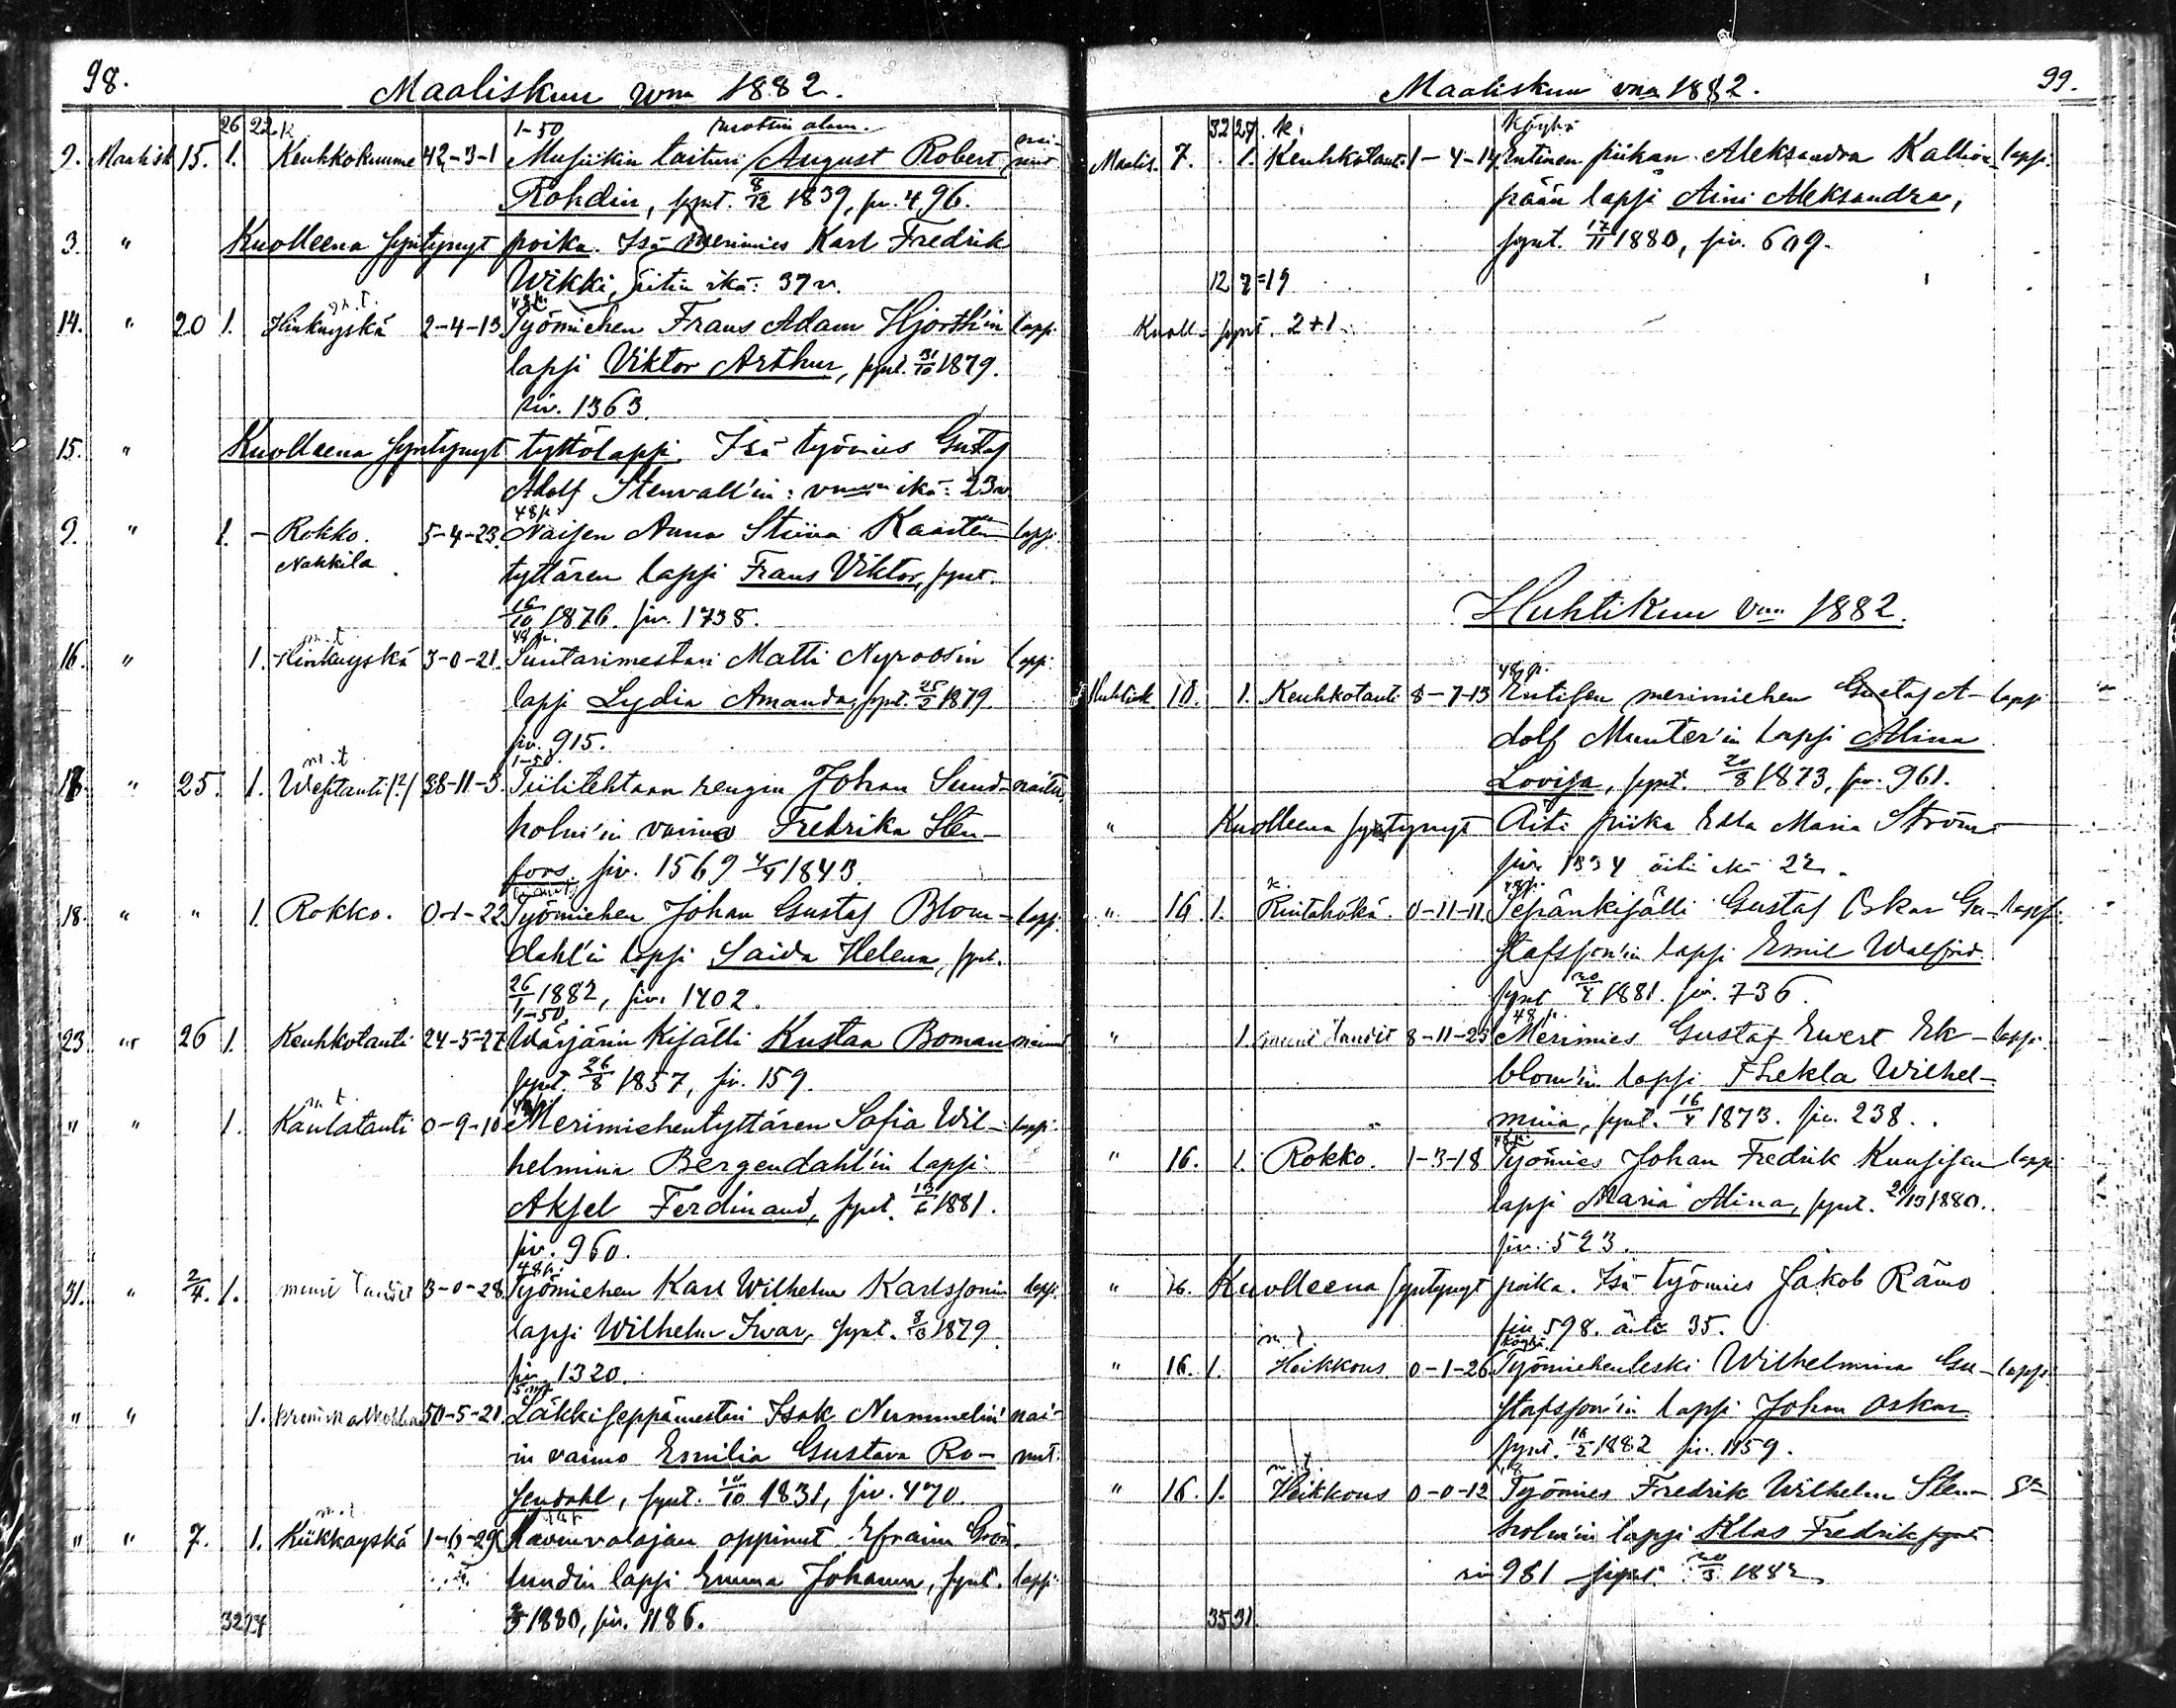 98.
Maaliskuu vna 1882.
26 22 k. 1-50 ruotsin alam.
9. Maalisk 15. 1. Keuhkokuume 42-3-1 Musiikin taituri August Robert nai-
Rohdin, synt. 8/12 1839, siv. 496. nut
3. " Kuolleena syntynyt poika. Isä Merimies Karl Fredrik
Wikki, äitin ikä: 37 v.
48 p.
14. " 20 1. Hinkuyskä 2-4-13 Työmiehen Frans Adam Hjorth'in lapsi
lapsi Viktor Arthur, synt. 31/10 1879.
siv. 1363.
15. " Kuolleena syntynyt tyttölapsi. Isä työmies Gustaf
Adolf Stenvall'in: vaimon ikä: 23 v.
48 p.
9. " 1. - Rokko. 5-4-23. Naisen Anna Stiina Kaarlen lapsi
Nakkila tyttären lapsi Frans Viktor, synt.
16/10 1876. siv. 1738.
m.t 48 p.
16. " 1. Hinkuyskä 3-0-21. Suutarimestari Matti Nyroos'in lapsi
lapsi Lydia Amanda, synt. 25/2 1879.
siv. 915.
m.t 1-50.
18. " 25. 1. Wesitauti (?) 38-11-3. Tiilitehtaan rengin Johan Sund- naitu,
holm'in vaimo Fredrika Sten-
fors. siv. 1569 4/4 1843
18. " " 1. Rokko. 0-1-22 Työmiehen Johan Gustaf Blom- lapsi
dahl'in lapsi Saida Helena, synt.
26/1 1882, siv. 1402.
1-50.
23. " 26 1. Keuhkotauti 24-5-27. Wärjärin kisälli Kustaa Boman nainut
synt. 26/8 1857, siv. 159.
m.t. 48 p.
" " 1. Kaulatauti 0-9-10 Merimiehentyttären Sofia Wil- lapsi
helmina Bergendahl'in lapsi
Aksel Ferdinand, synt. 13/6 1881.
siv. 960.
48 p.
31. " 2/4. 1. muut taudit 3-0-28. Työmiehen Karl Wilhelm Karlsson'in lapsi
lapsi Wilhelm Ivar, synt. 3/3 1879.
siv. 1320.
" " 1. 50-5-21. Läkkiseppämestari Isak Nummelin' nai-
in vaimo Emilia Gustava Ro- nut.
sendahl, synt. 10/10 1831, siv. 470.
m.t
" " 7. 1. Kiikkayskä 1-6-29 Raavinvalajan oppinut Efraim Grön-
lundin lapsi Emma Johanna, synt. lapsi
1880, siv. 1186.
32 27
Maaliskuu vna 1882.
99.
32 27. k. Köyhä
Maalis. 7. 1. Keuhkotauti 1-4-14. Entinen piikan Aleksandra Kallion- lapsi.
pään lapsi Aini Aleksandra,
synt. 17/11 1880, siv. 609.
12 7=19
Kuoll. synt. 2+1.
Huhtikuu vna 1882.
48 p.
Huhtik. 10. 1. Keuhkotauti 8-7-13 Entisen merimiehen Gustaf A- lapsi
dolf Munter'in lapsi Alina
Lovisa, synt. 20/8 1873, siv. 961.
" Kuolleena syntynyt Äiti piika Edla Maria Ström
siv. 1334 äitin ikä 22.
k. 48 p.
" 16. 1. Rintahäkä. 0-11-11. Sepänkisälli Gustaf Oskar Gu- lapsi.
stafsson'in lapsi Emil Walfrid
synt 20/4 1881. siv. 736.
48 p.
" 1. muut taudit 8-11-23 Merimies Gustaf Evert Ek- lapsi.
blom'in lapsi Thekla Wilhel-
mina, synt. 16/4 1873. siv. 238.
48 p.
" 16. 1. Rokko. 1-3-18 Työmies Johan Fredrik Kuusisen lapsi
lapsi Maria Alina, synt. 1880.
siv. 523.
" 16. Kuolleena syntynyt poika. Isä työmies Jakob Rämo
siv 598. äiti 35.
m.t. Köyhä.
" 16. 1. Heikkous 0-1-26 Työmiehenleski Wilhelmina Gu- lapsi.
stafsson'in lapsi Johan Oskar
synt. 18/2 1882 siv. 1159.
m.t.
" 16. 1. Heikkous 0-0-12 Työmies Fredrik Wilhelm Sten-
holm'in lapsi Klas Fredrik synt
siv 981 synt. 20/3 1882
35 31.